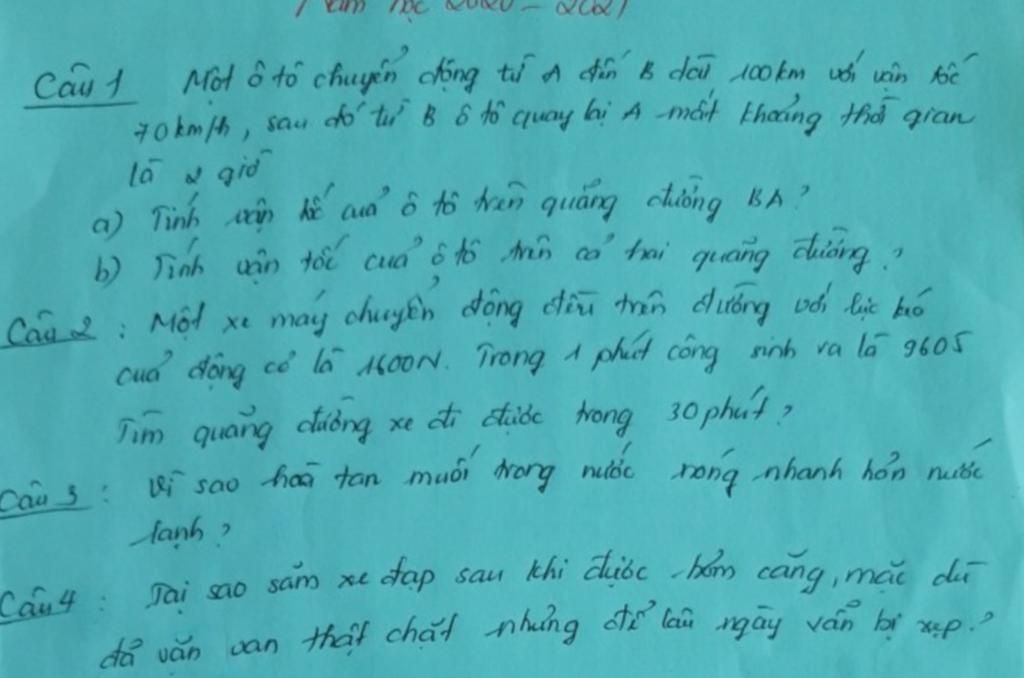 Năm học 2020 - 2021
Câu 1 Một ô tô chuyển động từ A đến B dài 100km với vận tốc
70km/h, sau đó từ B ô tô quay lại A mất khoảng thời gian
là 2 giờ
a) Tính vận tốc của ô tô trên quãng đường BA?
b) Tính vận tốc của ô tô trên cả hai quãng đường?
Câu 2: Một xe máy chuyển động đều trên đường với lực kéo
của động cơ là 1600N. Trong 1 phút công sinh ra là 960J
Tìm quãng đường xe đi được trong 30 phút?
Câu 3: Vì sao hoà tan muối trong nước nóng nhanh hơn nước
lạnh?
Câu 4: Tại sao săm xe đạp sau khi được bơm căng, mặc dù
đã vặn van thật chặt nhưng để lâu ngày vẫn bị xẹp?